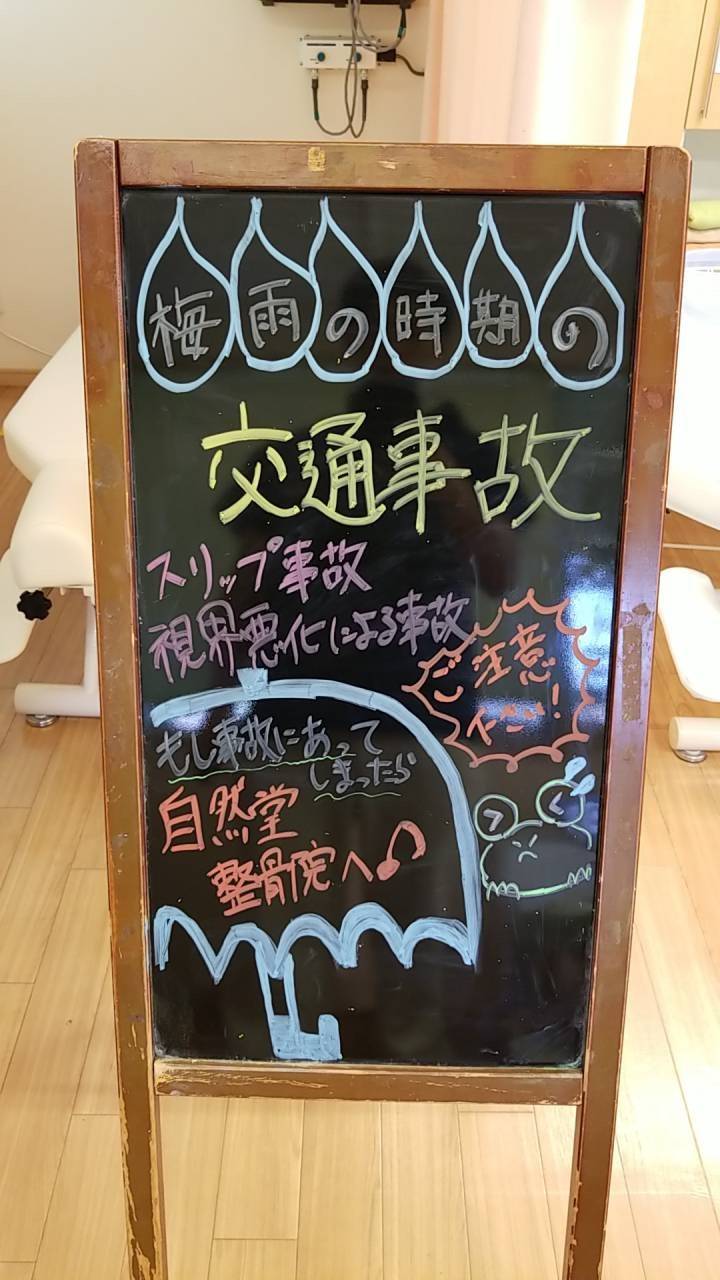 梅雨の時期の
交通事故
スリップ事故
視界悪化による事故
ご注意
下さい!
もし事故にあって
しまったら
自然堂
整骨院へ♪